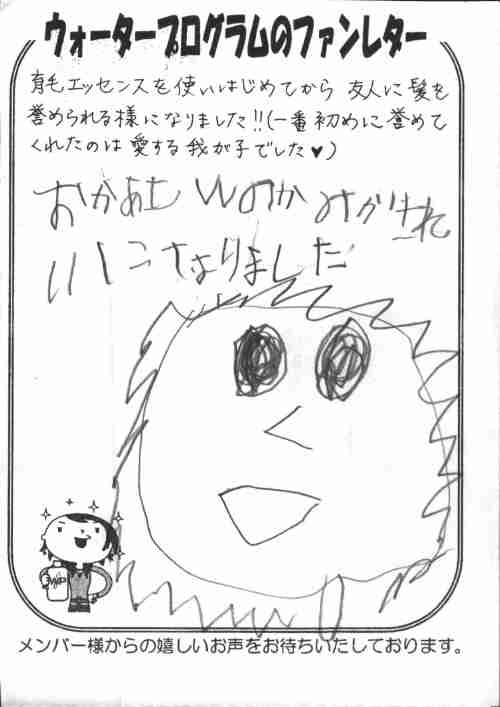 ウォータープログラムのファンレター
育毛エッセンスを使いはじめてから 友人に髪を
誉められる様になりました!!(一番初めに誉めて
くれたのは 愛する 我が子でした♥)
おかあさんのかみがきれ
いになりました
メンバー様からの嬉しいお声をお待ちいたしております。